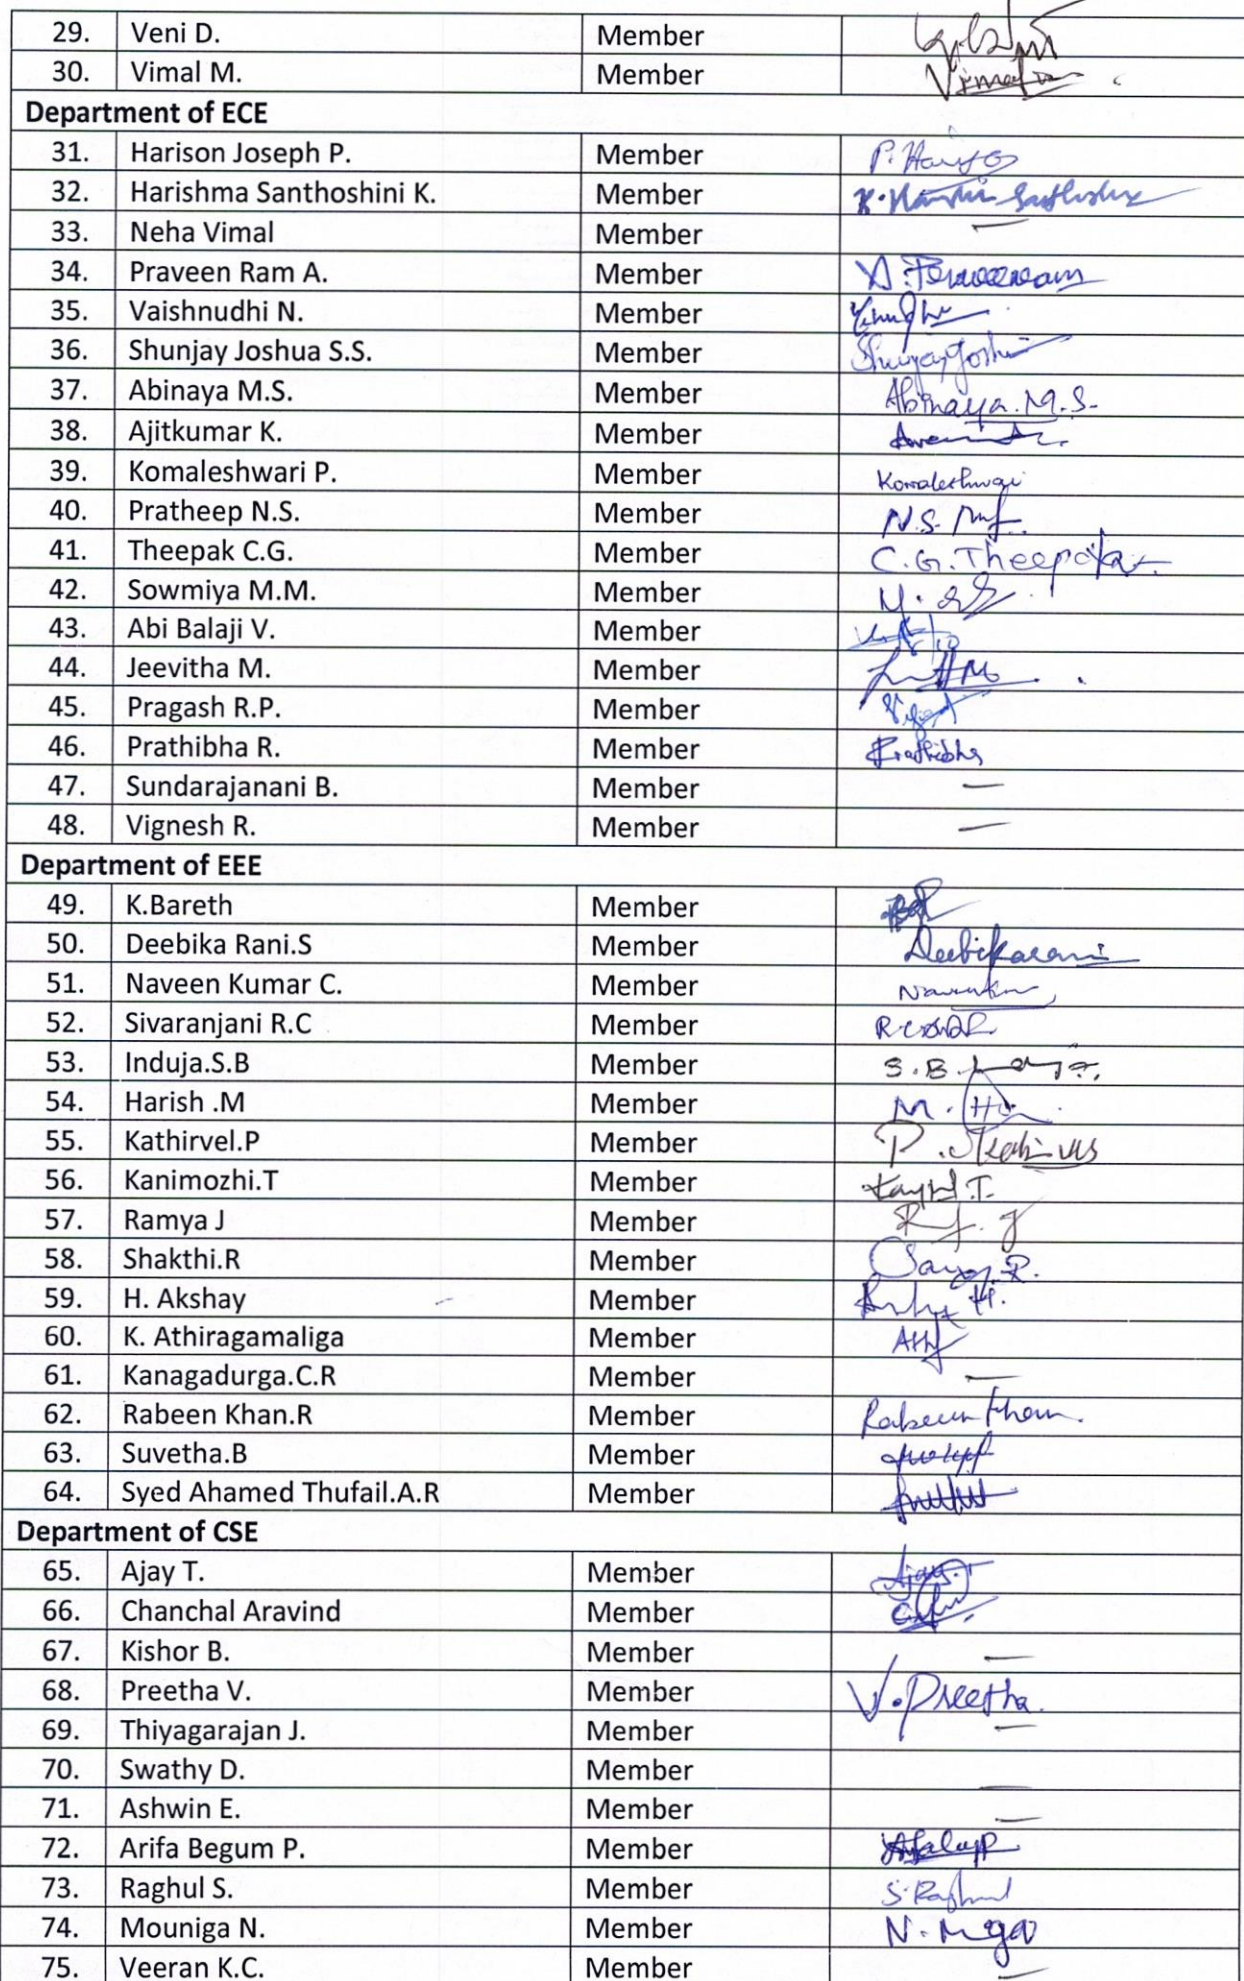 29. Veni D. Member
30. Vimal M. Member Vimal
Department of ECE
31. Harison Joseph P. Member
32. Harishma Santhoshini K. Member
33. Neha Vimal Member —
34. Praveen Ram A. Member
35. Vaishnudhi N. Member
36. Shunjay Joshua S.S. Member
37. Abinaya M.S. Member Abinaya.M.S.
38. Ajitkumar K. Member
39. Komaleshwari P. Member Komaleshwari
40. Pratheep N.S. Member
41. Theepak C.G. Member C.G.Theepak
42. Sowmiya M.M. Member
43. Abi Balaji V. Member
44. Jeevitha M. Member
45. Pragash R.P. Member
46. Prathibha R. Member Prathibha
47. Sundarajanani B. Member —
48. Vignesh R. Member —
Department of EEE
49. K.Bareth Member
50. Deebika Rani.S Member Deebikarani
51. Naveen Kumar C. Member
52. Sivaranjani R.C Member
53. Induja.S.B Member
54. Harish .M Member
55. Kathirvel.P Member
56. Kanimozhi.T Member
57. Ramya J Member
58. Shakthi.R Member
59. H. Akshay Member
60. K. Athiragamaliga Member
61. Kanagadurga.C.R Member —
62. Rabeen Khan.R Member Rabeen Khan.
63. Suvetha.B Member
64. Syed Ahamed Thufail.A.R Member
Department of CSE
65. Ajay T. Member Ajay.T
66. Chanchal Aravind Member
67. Kishor B. Member —
68. Preetha V. Member V.Preetha.
69. Thiyagarajan J. Member —
70. Swathy D. Member —
71. Ashwin E. Member —
72. Arifa Begum P. Member
73. Raghul S. Member S.Raghul
74. Mouniga N. Member
75. Veeran K.C. Member —